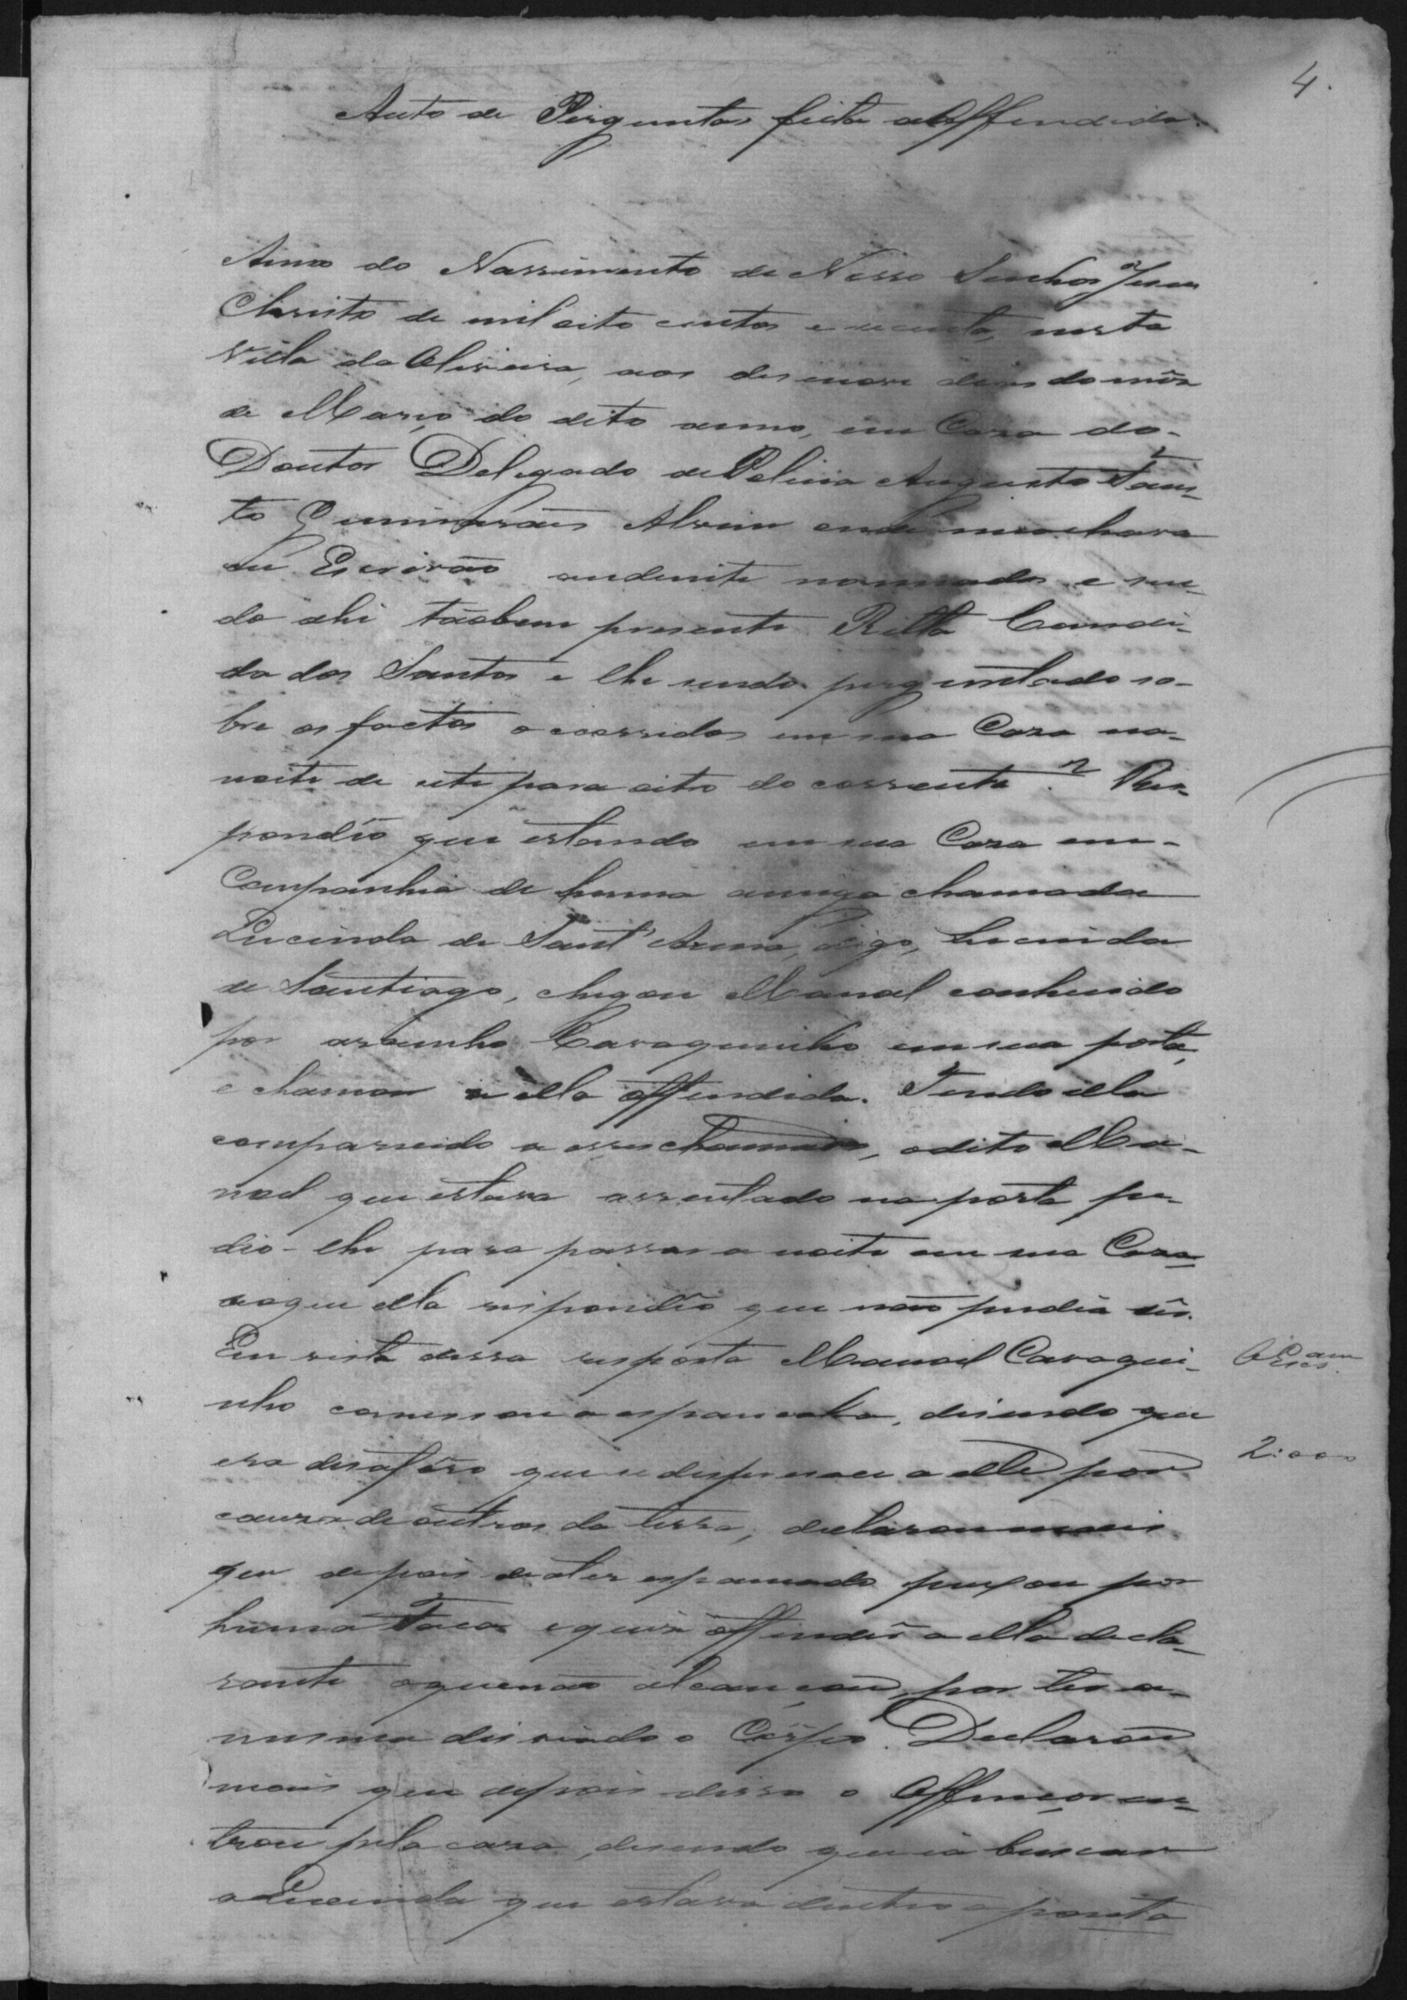 4.
Auto de Perguntas feito a Offendida.
Anno do Nascimento de Nosso Senhor Jesus
Christo de mil oito centos e secenta, nesta
Villa da Oliveira, aos desenove dias do mês
de Março do dito anno, em Caza do
Doutor Delegado de Policia Augusto
Guimarães Alvim onde me achava
eu Escrivão nomeado e sen-
do ahi tãobem presente Ritta Candi-
da dos Santos e lhe sendo perguntado so-
bre os factos occorridos em sua Caza na
noite de sete para oito do corrente? Res-
pondêo que estando em sua Caza em
Companhia de huma amiga chamada
Lucinda de Sant'Anna, digo, Lucinda
de Santiago, chegou Manoel conhecido
por Cavaquinho em sua porta,
e chamou a ella offendida. Tendo ella
comparecido a esse chamado, o dito Ma-
noel que estava assentado na porta pe-
dio-lhe para passar a noite em sua Caza
ao que ella respondêo que não pudia ser.
Em vista dessa resposta Manoel Cavaqui-
nho comessou a espancala, disendo que
era disafôro que se despresace a elle por
cauza de outros da terra, declarou mais
que depois de a ter espancado puxou por
huma Faca e quis offender a ella decla-
rante o que não alcançou, por ter a
mesma desviado o Côrpo. Declarou
mais que depois disso o Offençor en-
trou pela caza, disendo que ia buscar
a Lucinda que estava dentro e
2:000